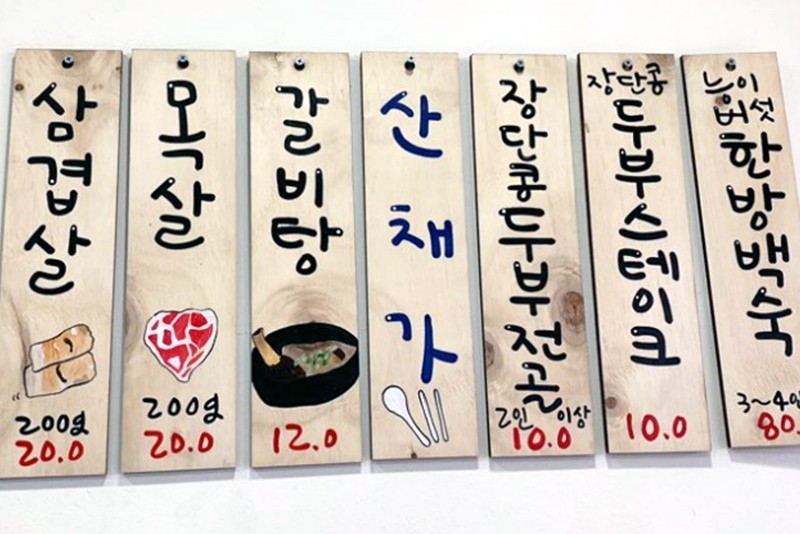 삼겹살
200g
20.0
목살
200g
20.0
갈비탕
12.0
산채가
장단콩두부전골
2인 이상
10.0
장단콩
두부스테이크
10.0
능이
버섯
한방백숙
3~4인
80.